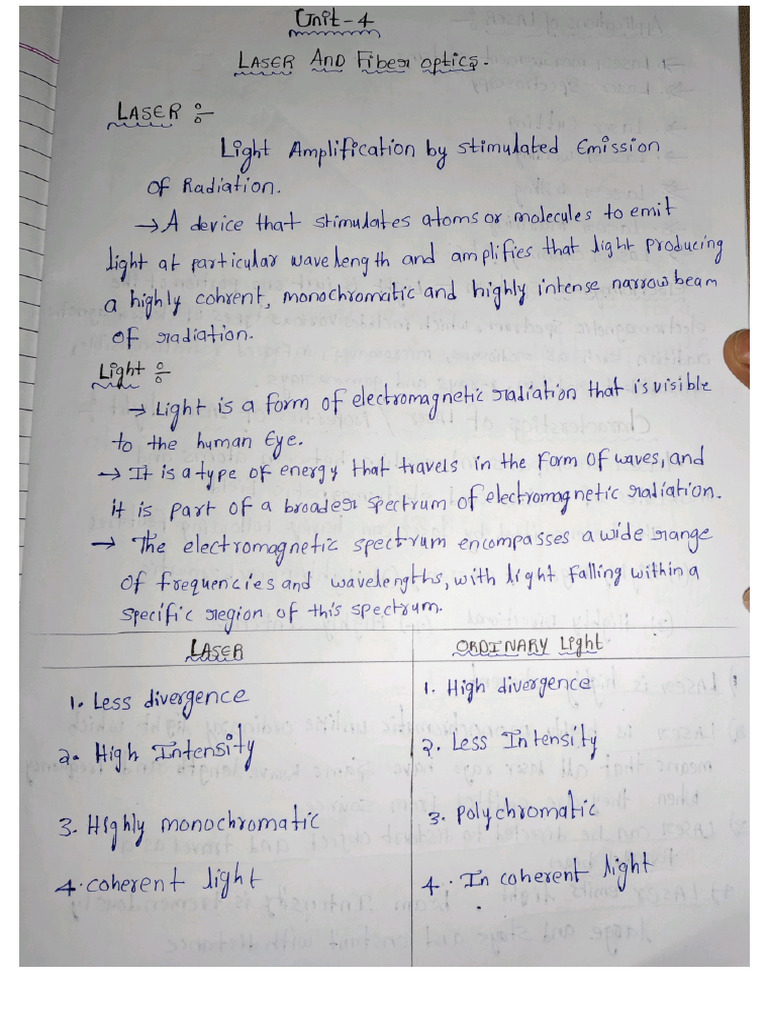 Unit-4
LASER AND Fiber optics.
LASER :-
Light Amplification by stimulated Emission
of Radiation.
→ A device that stimulates atoms or molecules to emit
light at particular wavelength and amplifies that light producing
a highly cohrent, monochromatic and highly intense narrow beam
of radiation.
Light :-
→ Light is a form of electromagnetic radiation that is visible
to the human Eye.
→ It is a type of energy that travels in the form of waves, and
it is part of a broader spectrum of electromagnetic radiation.
→ The electromagnetic spectrum encompasses a wide range
of frequencies and wavelengths, with light falling within a
specific region of this spectrum.
LASER ORDINARY Light
1. Less divergence 1. High divergence
2. High Intensity 2. Less Intensity
3. Highly monochromatic 3. Polychromatic
4. coherent light 4. In coherent light